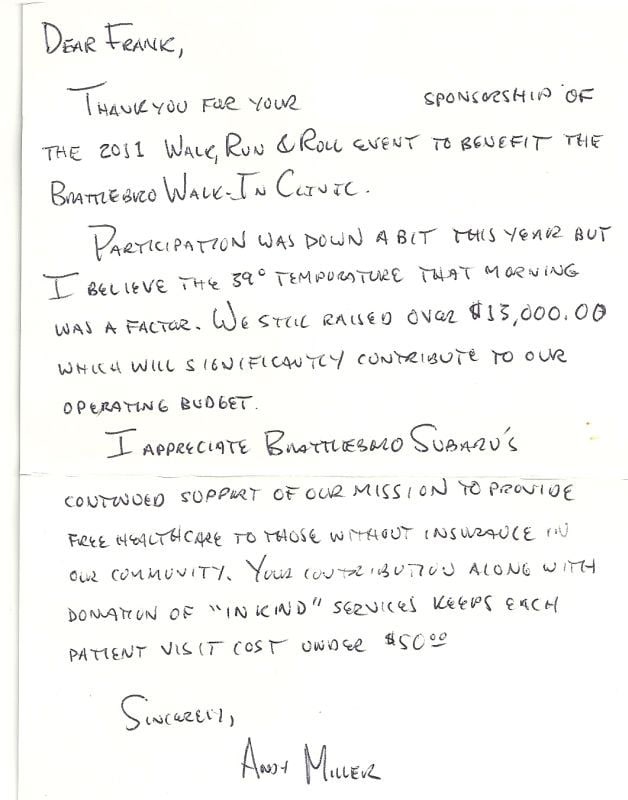 DEAR FRANK,
THANK YOU FOR YOUR SPONSORSHIP OF
THE 2011 WALK, RUN & ROLL EVENT TO BENEFIT THE
BRATTLEBORO WALK-IN CLINIC.
PARTICIPATION WAS DOWN A BIT THIS YEAR BUT
I BELIEVE THE 39° TEMPURATURE THAT MORNING
WAS A FACTOR. WE STILL RAISED OVER $13,000.00
WHICH WILL SIGNIFICANTLY CONTRIBUTE TO OUR
OPERATING BUDGET.
I APPRECIATE BRATTLEBORO SUBARU'S
CONTINUED SUPPORT OF OUR MISSION TO PROVIDE
FREE HEALTHCARE TO THOSE WITHOUT INSURANCE IN
OUR COMMUNITY. YOUR CONTRIBUTION ALONG WITH
DONATION OF "IN KIND" SERVICES KEEPS EACH
PATIENT VISIT COST UNDER $50.00
SINCERELY,
ANDY MILLER